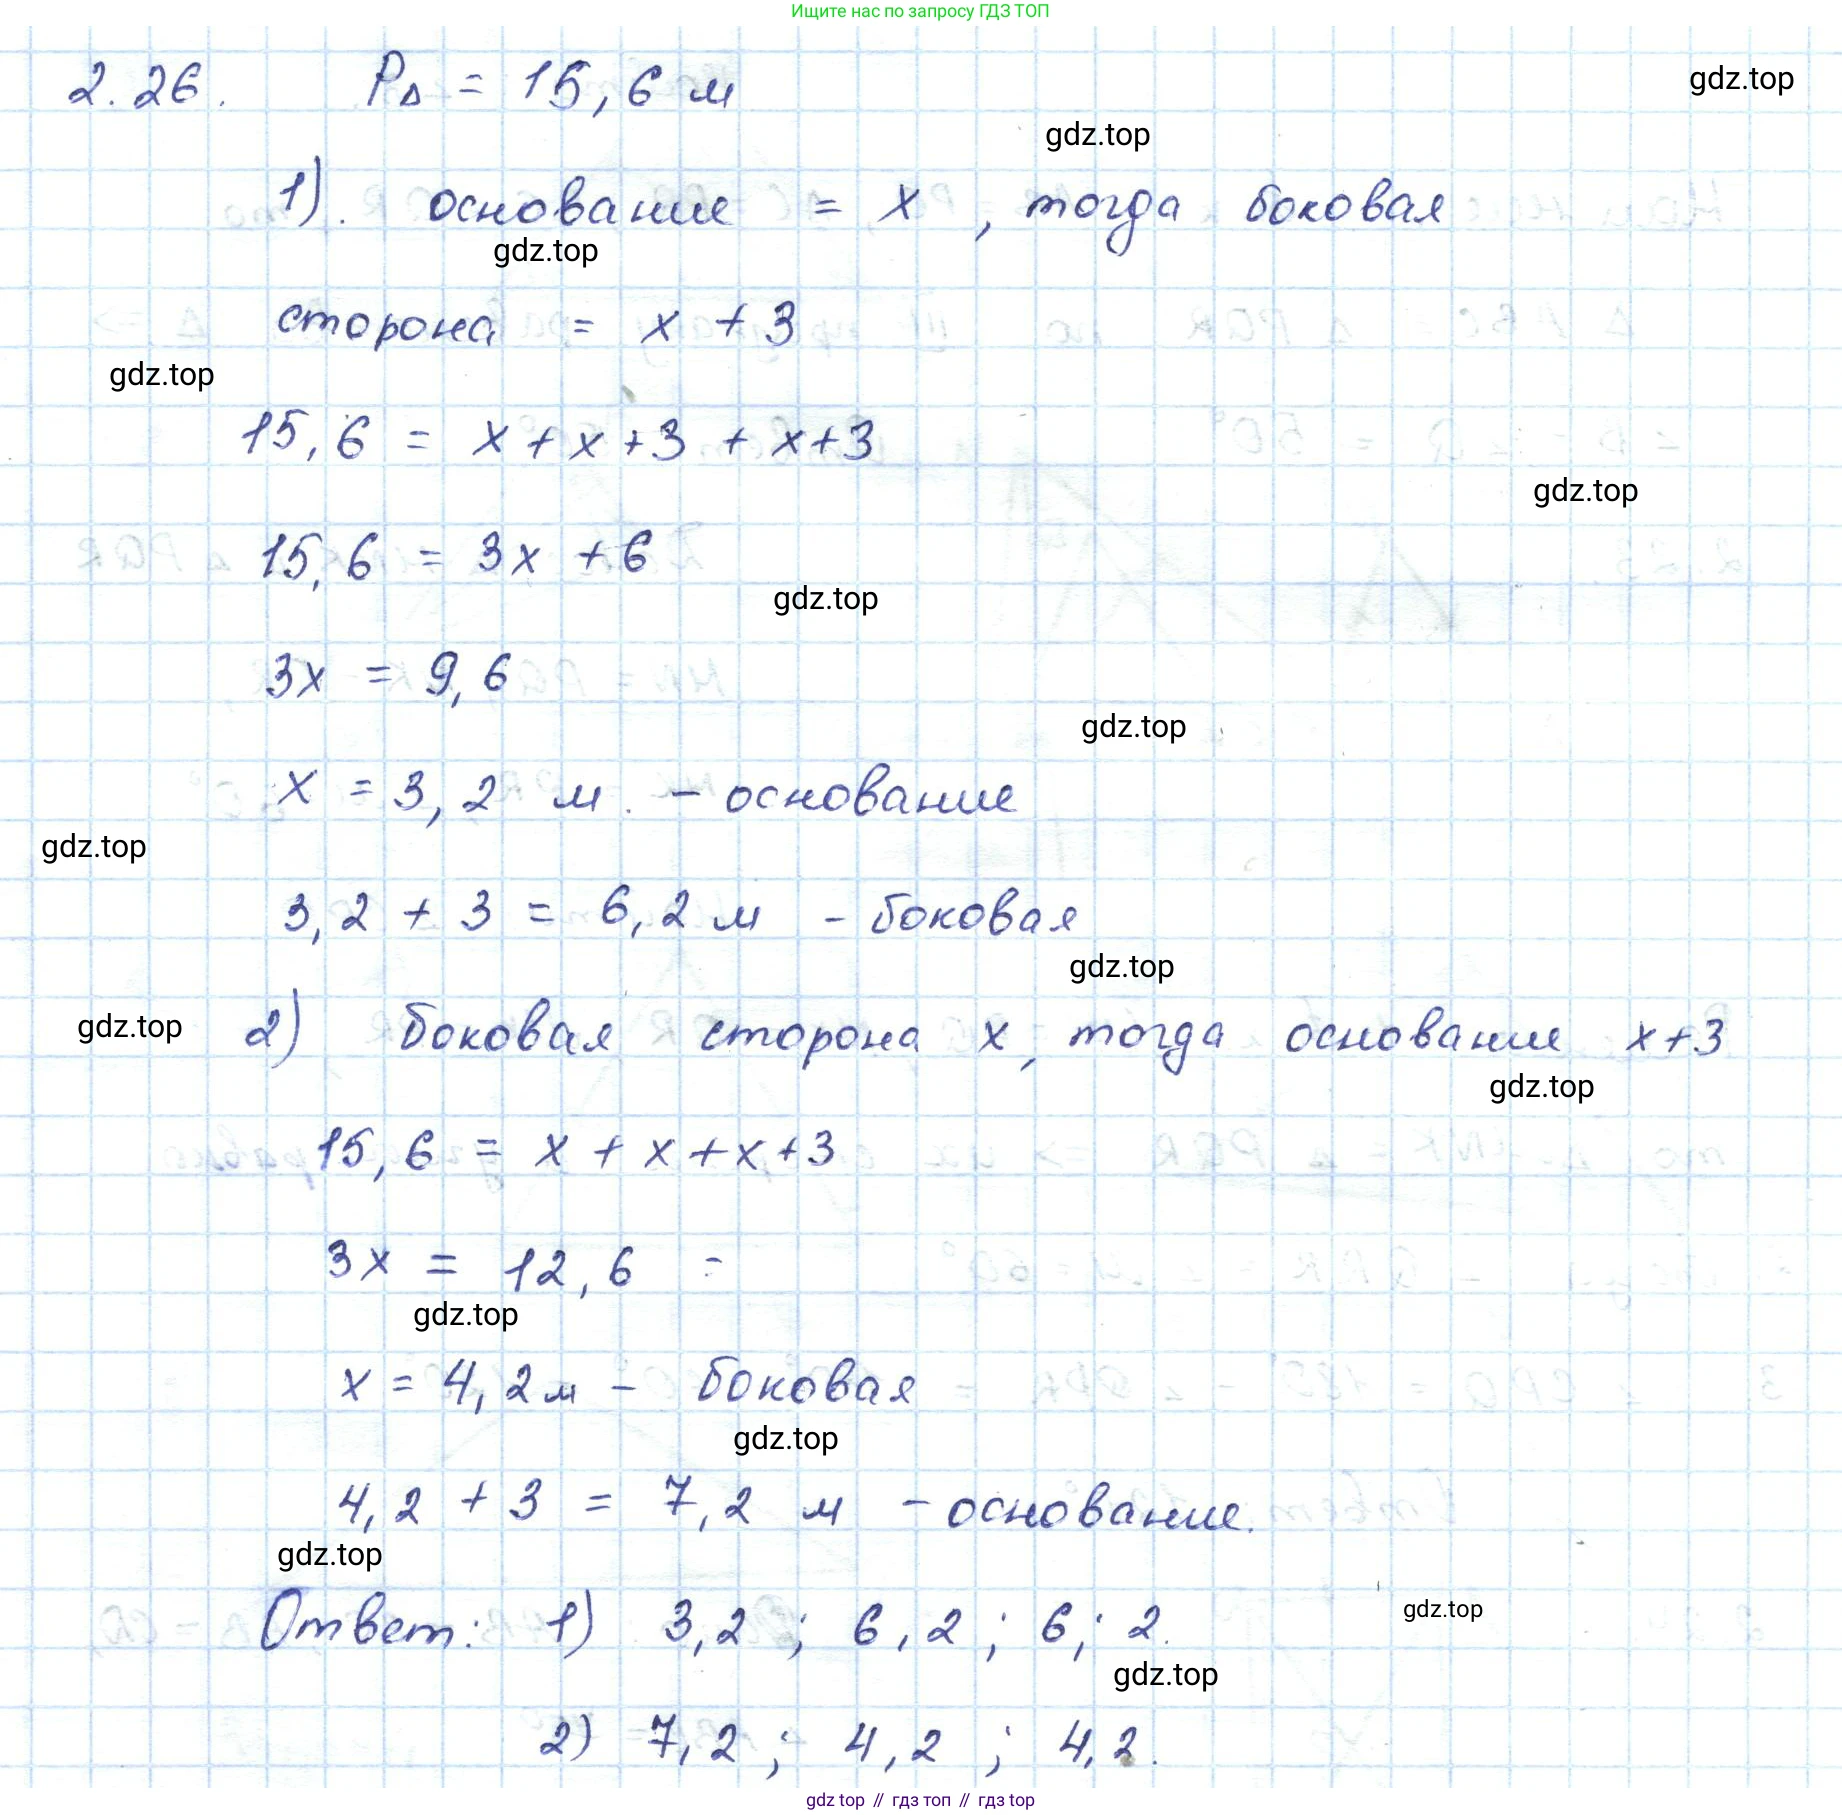 Ищите нас по запросу ГДЗ ТОП
2.26. P△ = 15,6 м
gdz.top
gdz.top
1). основание = x, тогда боковая
gdz.top
сторона = x + 3
gdz.top
15,6 = x + x + 3 + x + 3
gdz.top
15,6 = 3x + 6
gdz.top
3x = 9,6
gdz.top
x = 3,2 м. - основание
gdz.top
3,2 + 3 = 6,2 м - боковая
gdz.top
gdz.top
2) боковая сторона x, тогда основание x+3
gdz.top
15,6 = x + x + x + 3
3x = 12,6 =
gdz.top
x = 4,2 м - боковая
gdz.top
4,2 + 3 = 7,2 м - основание.
gdz.top
Ответ: 1) 3,2 ; 6,2 ; 6; 2.
gdz.top
gdz.top
2) 7,2 ; 4,2 ; 4,2.
gdz top // гдз топ // гдз top